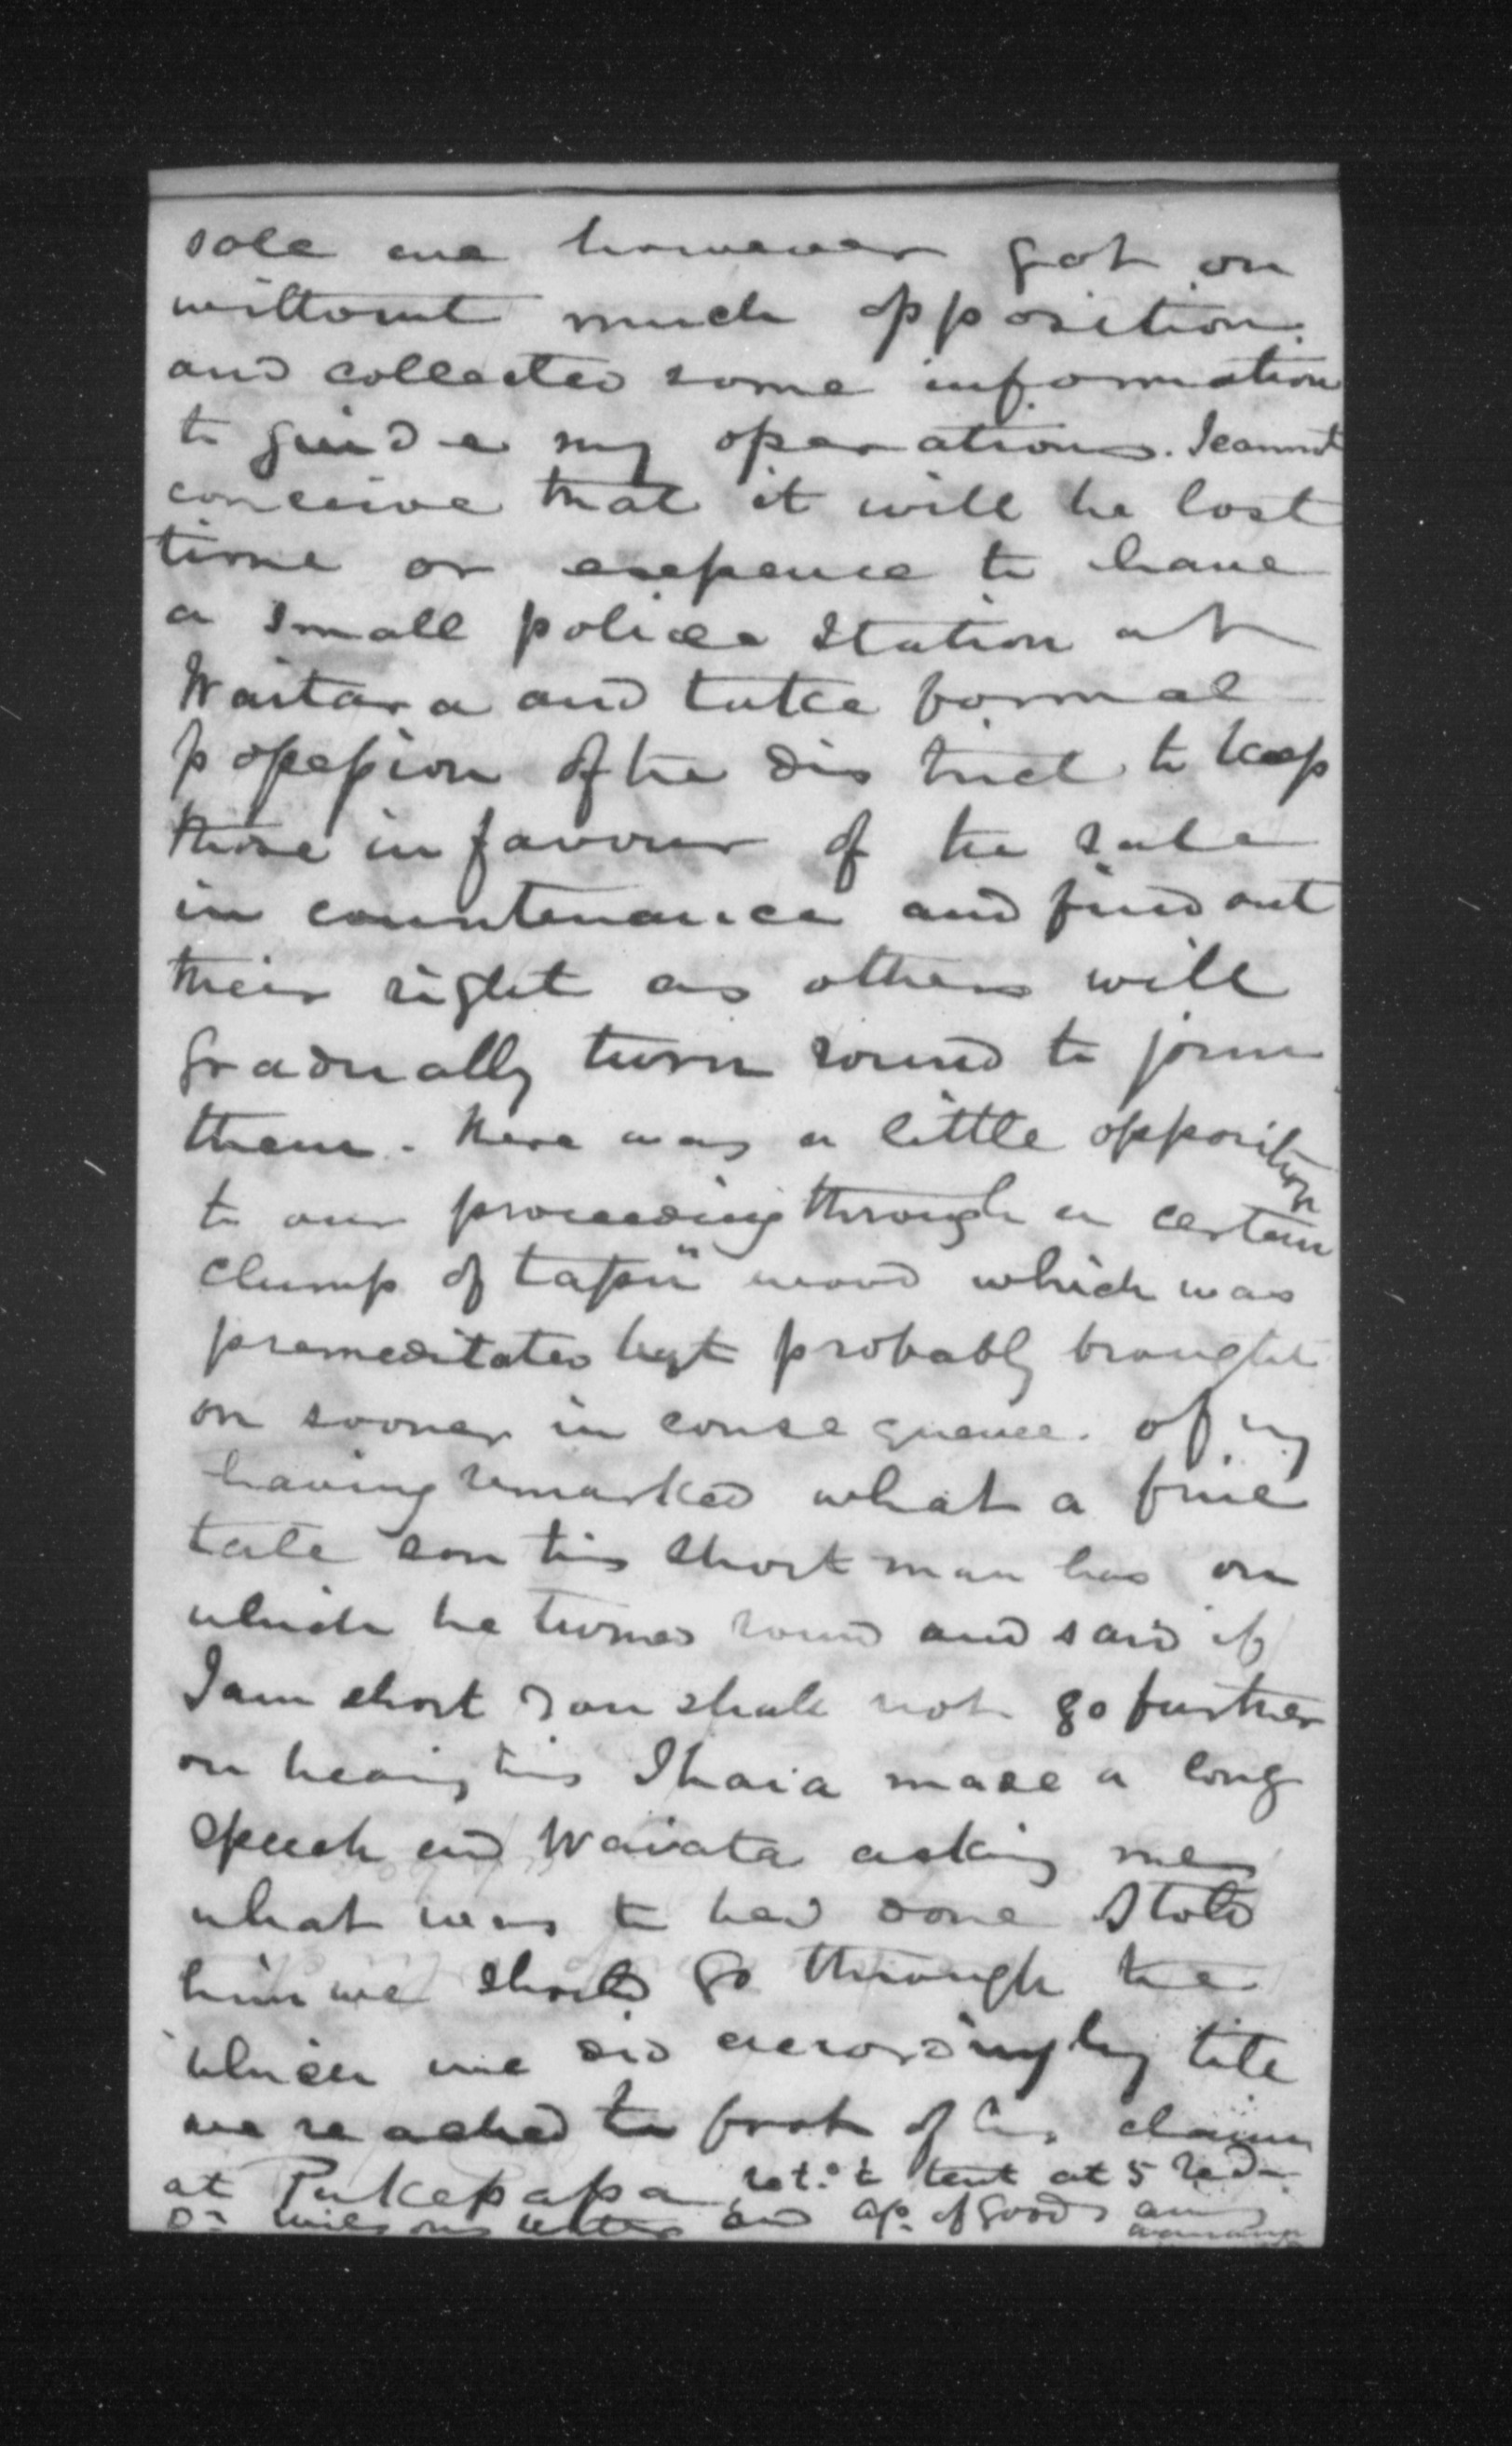 sale we however got on
without much opposition
and collected some information
to guide my operations. I cannot
conceive that it will be lost
time or expence to have
a small police station at
Waitara and take formal
possession of the district to keep
those in favour of the sale
in countenance and find out
their right as others will
gradually turn round to join
them. There was a little opposition
to our proceeding through a certain
clump of tapu" wood which was
premeditated but probably brought
on sooner in consequence of my
having remarked what a fine
tall son this short man has on
which he turned round and said if
I am short you shall not go further
on hearing this Ihaia made a long
speech and Waiata asking me
what was to be done I told
him we should go through the
which we did accordingly till
we reached the foot of his claim
at Pukepapa ret.d to tent at 5 Recd
Dr Wilsons letter and of goods